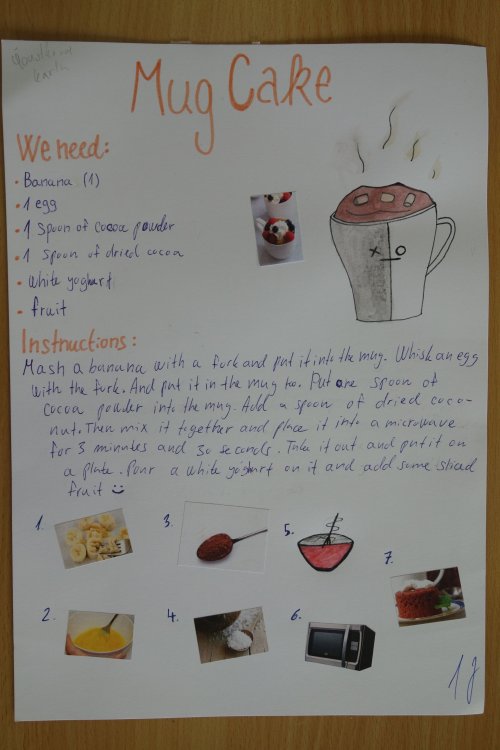 Mug Cake
We need:
• Banana (1)
• 1 egg
• 1 spoon of cocoa powder
• 1 spoon of dried cocoa
• white yoghurt
• fruit
Instructions:
Mash a banana with a fork and put it into the mug. Whisk an egg
with the fork. And put it in the mug too. Put one spoon of
cocoa powder into the mug. Add a spoon of dried coco-
nut. Then mix it together and place it into a microwave
for 3 minutes and 30 seconds. Take it out and put it on
a plate. Pour a white yoghurt on it and add some sliced
fruit
1.
2.
3.
4.
5.
6.
7.